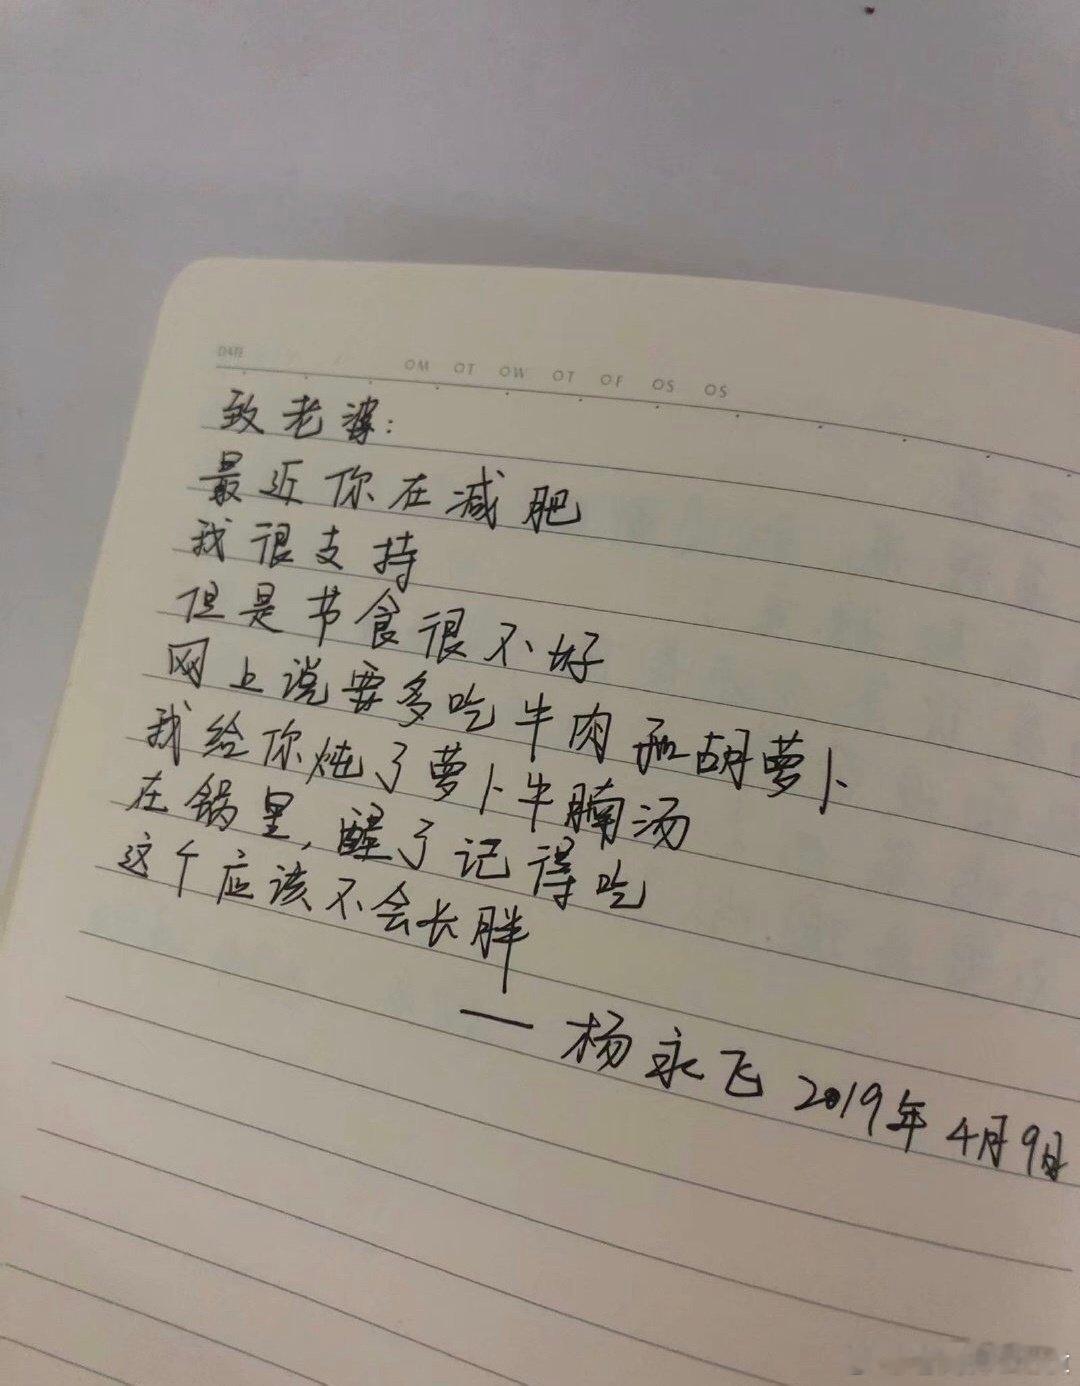 DATE
OM OT OW OT OF OS OS
致老婆:
最近你在减肥
我很支持
但是节食很不好
网上说要多吃牛肉和胡萝卜
我给你炖了萝卜牛腩汤
在锅里,醒了记得吃
这个应该不会长胖
— 杨永飞 2019年4月9日